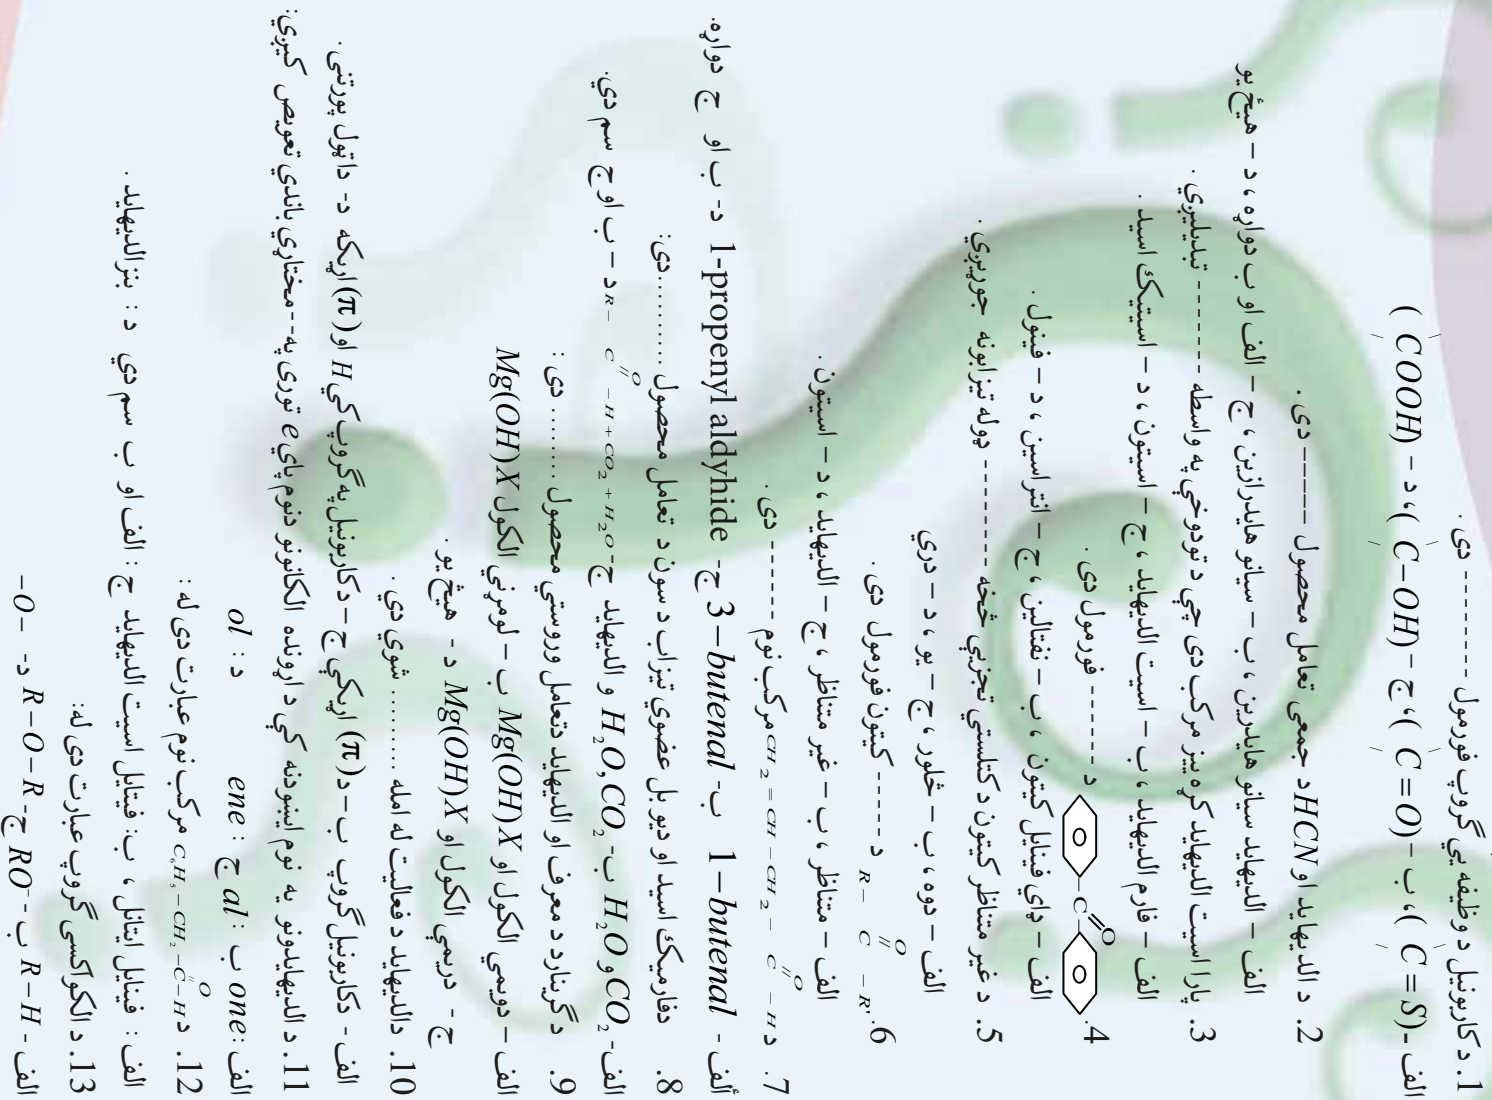 1. د کاربونیل د وظیفه یي گروپ فورمول --------- دی .
الف - (C = S) ، ب - (C = O) ، ج - (C-OH) ، د - (COOH)
2. د الدیهاید او HCN د جمعی تعامل محصول ------ دی .
الف - الدیهاید سیانو هایدرین ، ب - سیانو هایدرازین ، ج - الف او ب دواړه ، د - هیڅ یو
3. پارا اسیت الدیهاید کړه ییز مرکب دی چې د تودوخې په واسطه --------- تبدیلیږي .
الف - فارم الدیهاید ، ب - اسیت الدیهاید ، ج - اسیتون ، د - اسیتیک اسید .
4. C O د ------- فورمول دی .
الف - ډای فینایل کیتون ، ب - نفتالین ، ج - انتراسین ، د - فینول .
5. د غیر متناظر کیتون د کتلستي تجزیې څخه --------- ډوله تیزابونه جوړیږي .
الف - دوه ، ب - څلور ، ج - یو ، د - درې
6. R - C - R' O د ------ کیتون فورمول دی .
الف - متناظر ، ب - غیر متناظر ، ج - الدیهاید ، د - اسیتون .
7. د CH2 = CH - CH2 - C - H O مرکب نوم ------- دی .
ألف - 1-butenal ب - 3-butenal ج - 1-propenyl aldyhide د - ب او ج دواړه.
8. دفارمیک اسید او دیو بل عضوي تیزاب د سون د تعامل محصول ............دی:
الف - CO2 و H2O ب - H2O,CO2 و الدیهاید ج - R - C - H + CO2 + H2O O د - ب او ج سم دي.
9. د گرینارد د معرف او الدیهاید دتعامل وروستي محصول .......... دی :
الف - دویمي الکول او Mg(OH)X ب - لومړني الکول Mg(OH)X
ج - دریمي الکول او Mg(OH)X د - هیڅ یو .
10. دالدیهاید د فعالیت له امله .......... شوي دي .
الف - دکاربونیل گروپ ب - د(π) اړیکې ج - دکاربونیل په گروپ کې H او (π) اړیکه د - داټول پورتنی .
11. د الدیهایدونو په نوم ایښودنه کې د اړونده الکانونو دنوم پای e توری په -- مختاړي باندې تعویض کیږي:
الف : one ب : al ج : ene د : ol
12. د C6H5 - CH2 - C - H O مرکب نوم عبارت دی له :
الف : فینایل ایتانل ، ب: فینایل اسیت الدیهاید ج : الف او ب سم دي د : بنزالدیهاید .
13. د الکواکسی گروپ عبارت دی له:
الف - R - H ب - RO- ج - R - O - R د - -O-